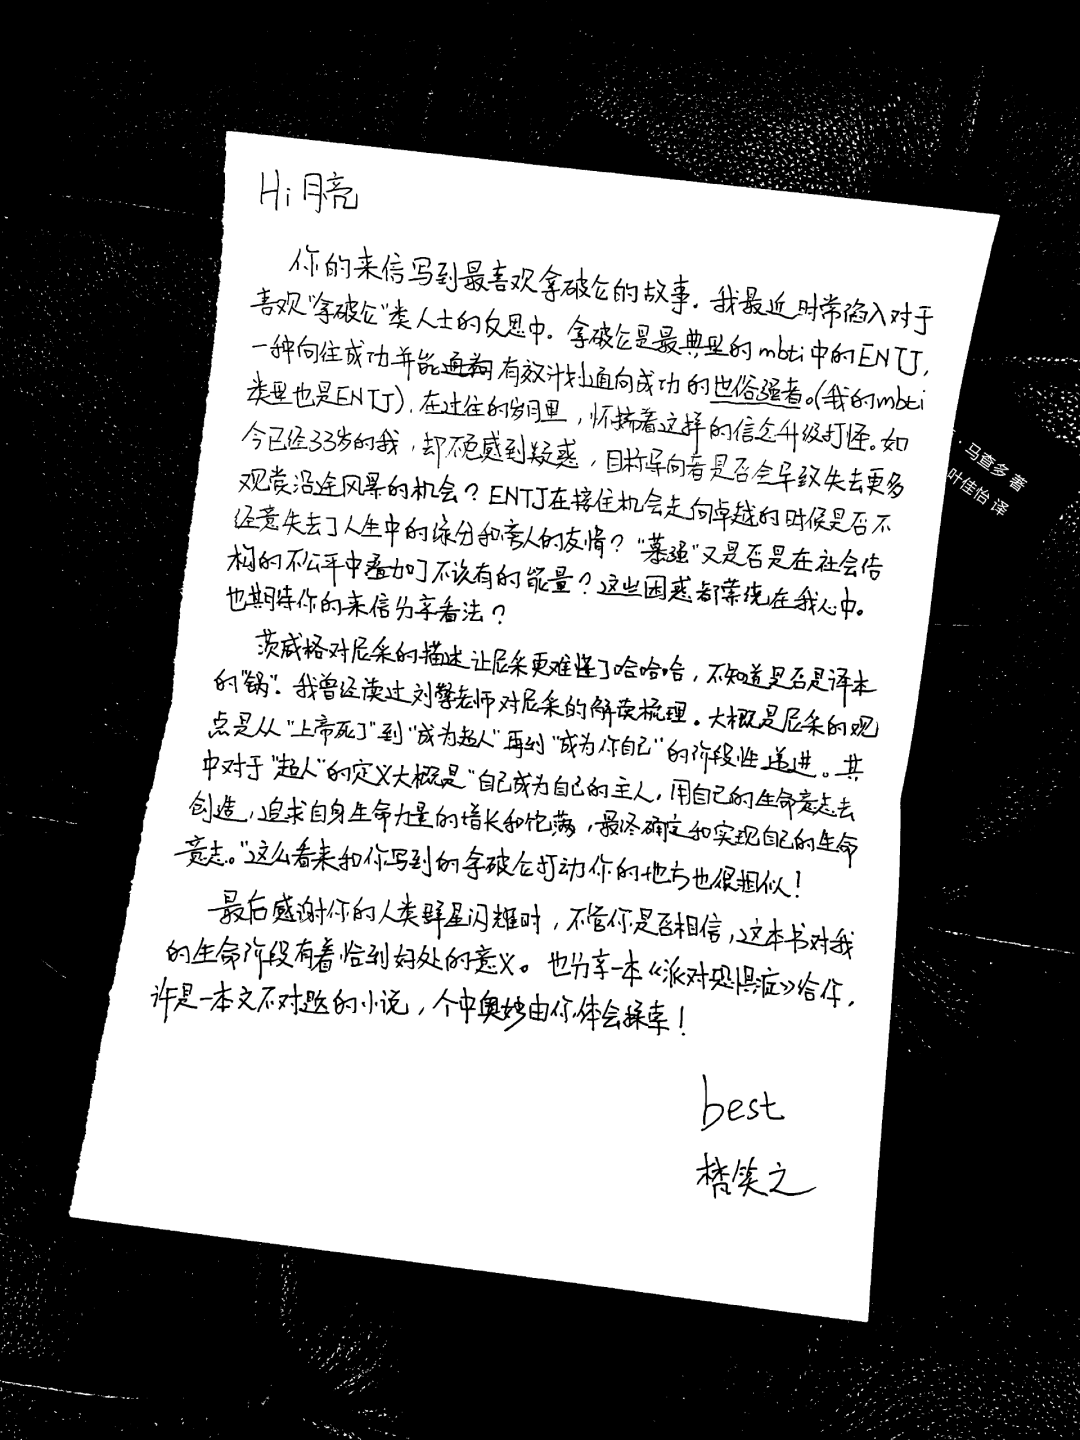 Hi 月亮
你的来信写到最喜欢拿破仑的故事。我最近时常陷入对于
喜欢"拿破仑"类人士的反思中。拿破仑是最典型的mbti中的ENTJ,
一种向往成功并能 有效计划通向成功的世俗强者。(我的mbti
类型也是ENTJ),在过往的岁月里,怀揣着这样的信念升级打怪。如
今已经33岁的我,却不免感到疑惑,目标导向者是否会导致失去更多
观赏沿途风景的机会?ENTJ在接住机会走向卓越的时候是否不
经意失去了人生中的缘分和旁人的友情?"慕强"又是否是在社会结
构的不公平中叠加了不该有的能量?这些困惑都萦绕在我心中。
也期待你的来信分享看法?
茨威格对尼采的描述让尼采更难懂了哈哈哈,不知道是否是译本
的"锅"。我曾经读过刘擎老师对尼采的解读梳理。大概是尼采的观
点是从"上帝死了"到"成为超人"再到"成为你自己"的阶段性递进。其
中对于"超人"的定义大概是"自己成为自己的主人,用自己的生命意志去
创造,追求自身生命力量的增长和饱满,最终确定和实现自己的生命
意志。"这么看来和你写到的拿破仑打动你的地方也很相似!
最后感谢你的人类群星闪耀时,不管你是否相信,这本书对我
的生命阶段有着恰到好处的意义。也分享一本《派对恐惧症》给你,
许是一本文不对题的小说,个中奥妙由你体会探索!
best
笑之
·马查多 著
叶佳怡 译